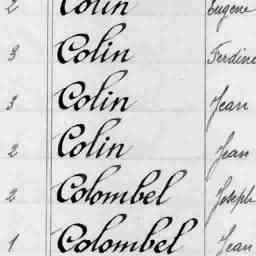 2 Colin Eugène
3 Colin Ferdin
3 Colin Jean
2 Colin Jean
2 Colombel Joseph
1 Colombel Jean